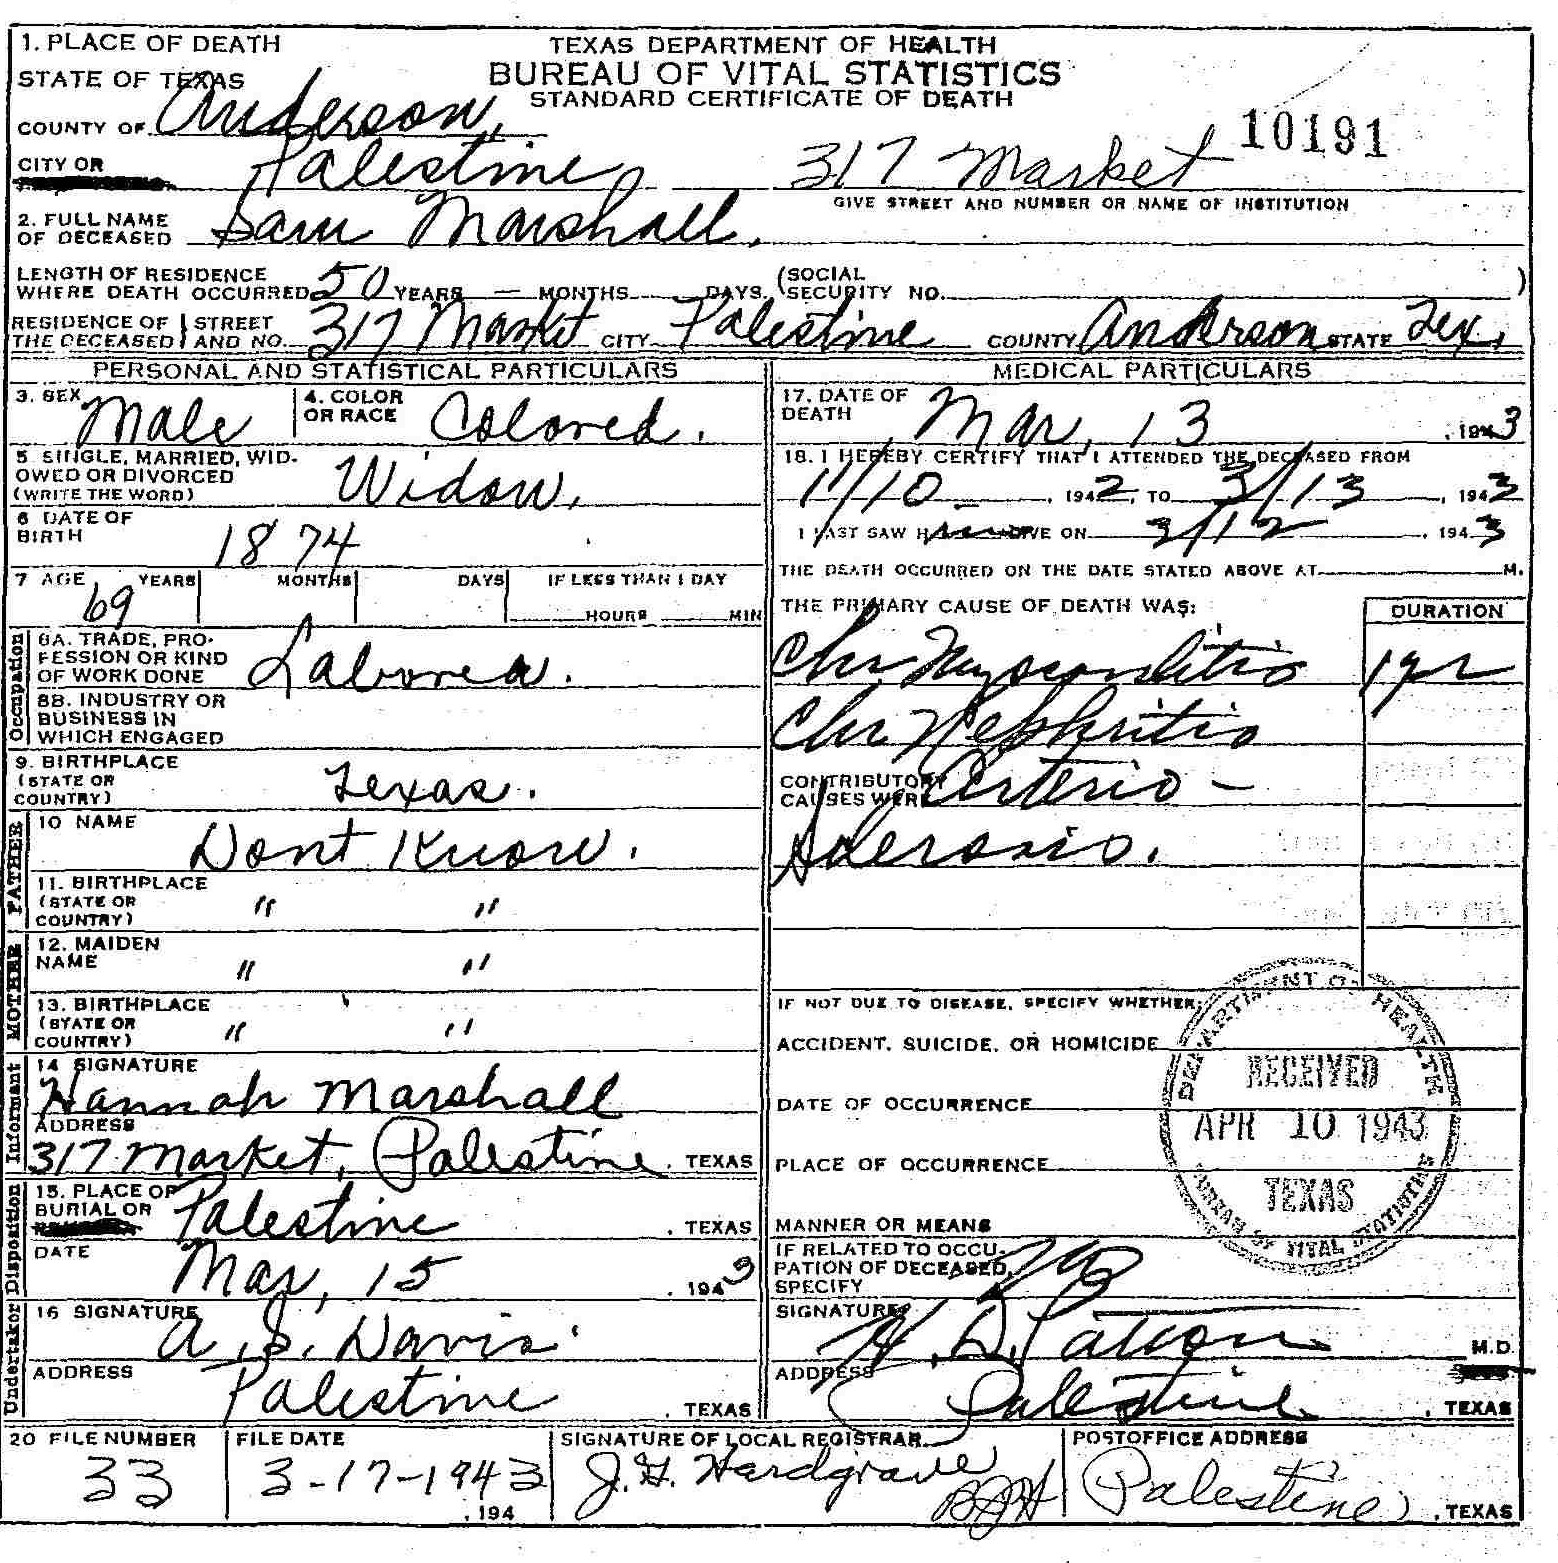 1. PLACE OF DEATH
TEXAS DEPARTMENT OF HEALTH
STATE OF TEXAS
BUREAU OF VITAL STATISTICS
STANDARD CERTIFICATE OF DEATH
COUNTY OF Anderson,
10191
CITY OR Palestine 317 Market
GIVE STREET AND NUMBER OR NAME OF INSTITUTION
2. FULL NAME OF DECEASED Sam Marshall.
LENGTH OF RESIDENCE WHERE DEATH OCCURRED 50 YEARS — MONTHS DAYS (SOCIAL SECURITY NO. )
RESIDENCE OF THE DECEASED STREET AND NO. 317 Market CITY Palestine COUNTY Anderson STATE Tex.
PERSONAL AND STATISTICAL PARTICULARS
3. SEX Male
4. COLOR OR RACE Colored.
5 SINGLE, MARRIED, WIDOWED OR DIVORCED (WRITE THE WORD) Widow.
6 DATE OF BIRTH 1874
7 AGE YEARS MONTHS DAYS IF LESS THAN 1 DAY
69 HOURS MIN
Occupation
8A. TRADE, PROFESSION OR KIND OF WORK DONE Laborer.
8B. INDUSTRY OR BUSINESS IN WHICH ENGAGED
9. BIRTHPLACE (STATE OR COUNTRY) Texas.
FATHER
10 NAME Dont Know.
11. BIRTHPLACE (STATE OR COUNTRY) " "
MOTHER
12. MAIDEN NAME " "
13. BIRTHPLACE (STATE OR COUNTRY) " "
Informant
14 SIGNATURE
Hannah Marshall
ADDRESS
317 Market, Palestine. TEXAS
Disposition
15. PLACE OF BURIAL OR Palestine . TEXAS
DATE Mar, 15 . 1943
Undertaker
16 SIGNATURE
A. S. Davis
ADDRESS
Palestine . TEXAS
MEDICAL PARTICULARS
17. DATE OF DEATH Mar, 13 , 1943
18. I HEREBY CERTIFY THAT I ATTENDED THE DECEASED FROM
11/10 , 1942, TO 3/13 , 1943
I LAST SAW H im ALIVE ON 3/12 , 1943
THE DEATH OCCURRED ON THE DATE STATED ABOVE AT M.
THE PRIMARY CAUSE OF DEATH WAS: DURATION
Chr. Myocarditis 1 yr
Chr. Nephritis
CONTRIBUTORY CAUSES WERE Arterio-
Sclerosis.
IF NOT DUE TO DISEASE, SPECIFY WHETHER:
ACCIDENT, SUICIDE, OR HOMICIDE
DATE OF OCCURRENCE
PLACE OF OCCURRENCE
MANNER OR MEANS
DEPARTMENT OF HEALTH
RECEIVED
APR 10 1943
TEXAS
BUREAU OF VITAL STATISTICS
IF RELATED TO OCCUPATION OF DECEASED, SPECIFY no
SIGNATURE H. D. Patton M.D.
ADDRESS
Palestine . TEXAS
20 FILE NUMBER
33
FILE DATE
3-17-1943
, 194
SIGNATURE OF LOCAL REGISTRAR
J. H. Hardgrave
BJH
POSTOFFICE ADDRESS
Palestine , TEXAS